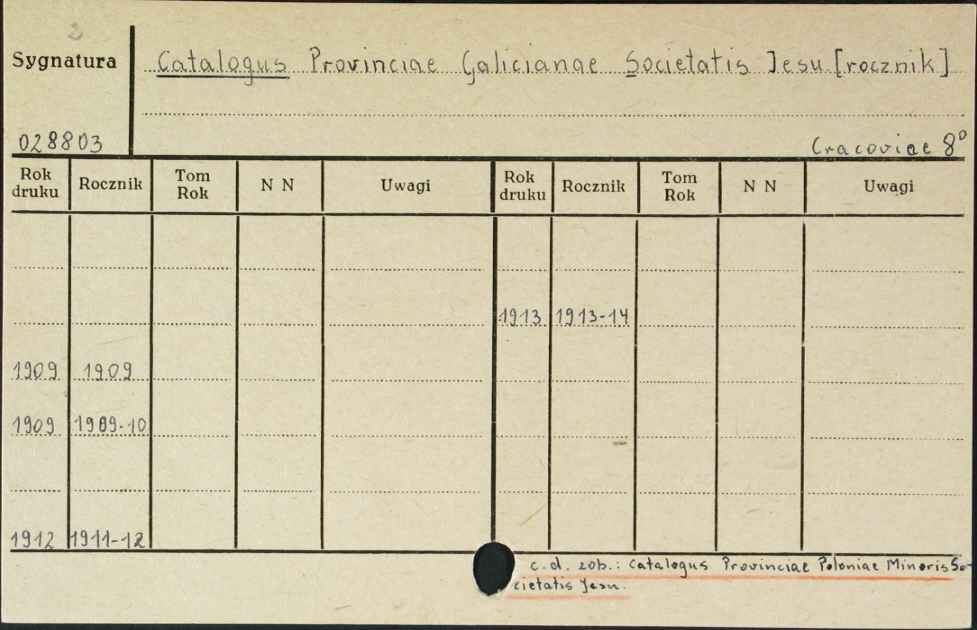 2
Sygnatura
Catalogus Provinciae Galicianae Societatis Jesu [rocznik]
028803
Cracoviae 8°
Rok druku Rocznik Tom Rok N N Uwagi Rok druku Rocznik Tom Rok N N Uwagi
1913 1913-14
1909 1909
1909 1909-10
1912 1911-12
c.d. zob.: Catalogus Provinciae Poloniae Minoris So-
cietatis Jesu.